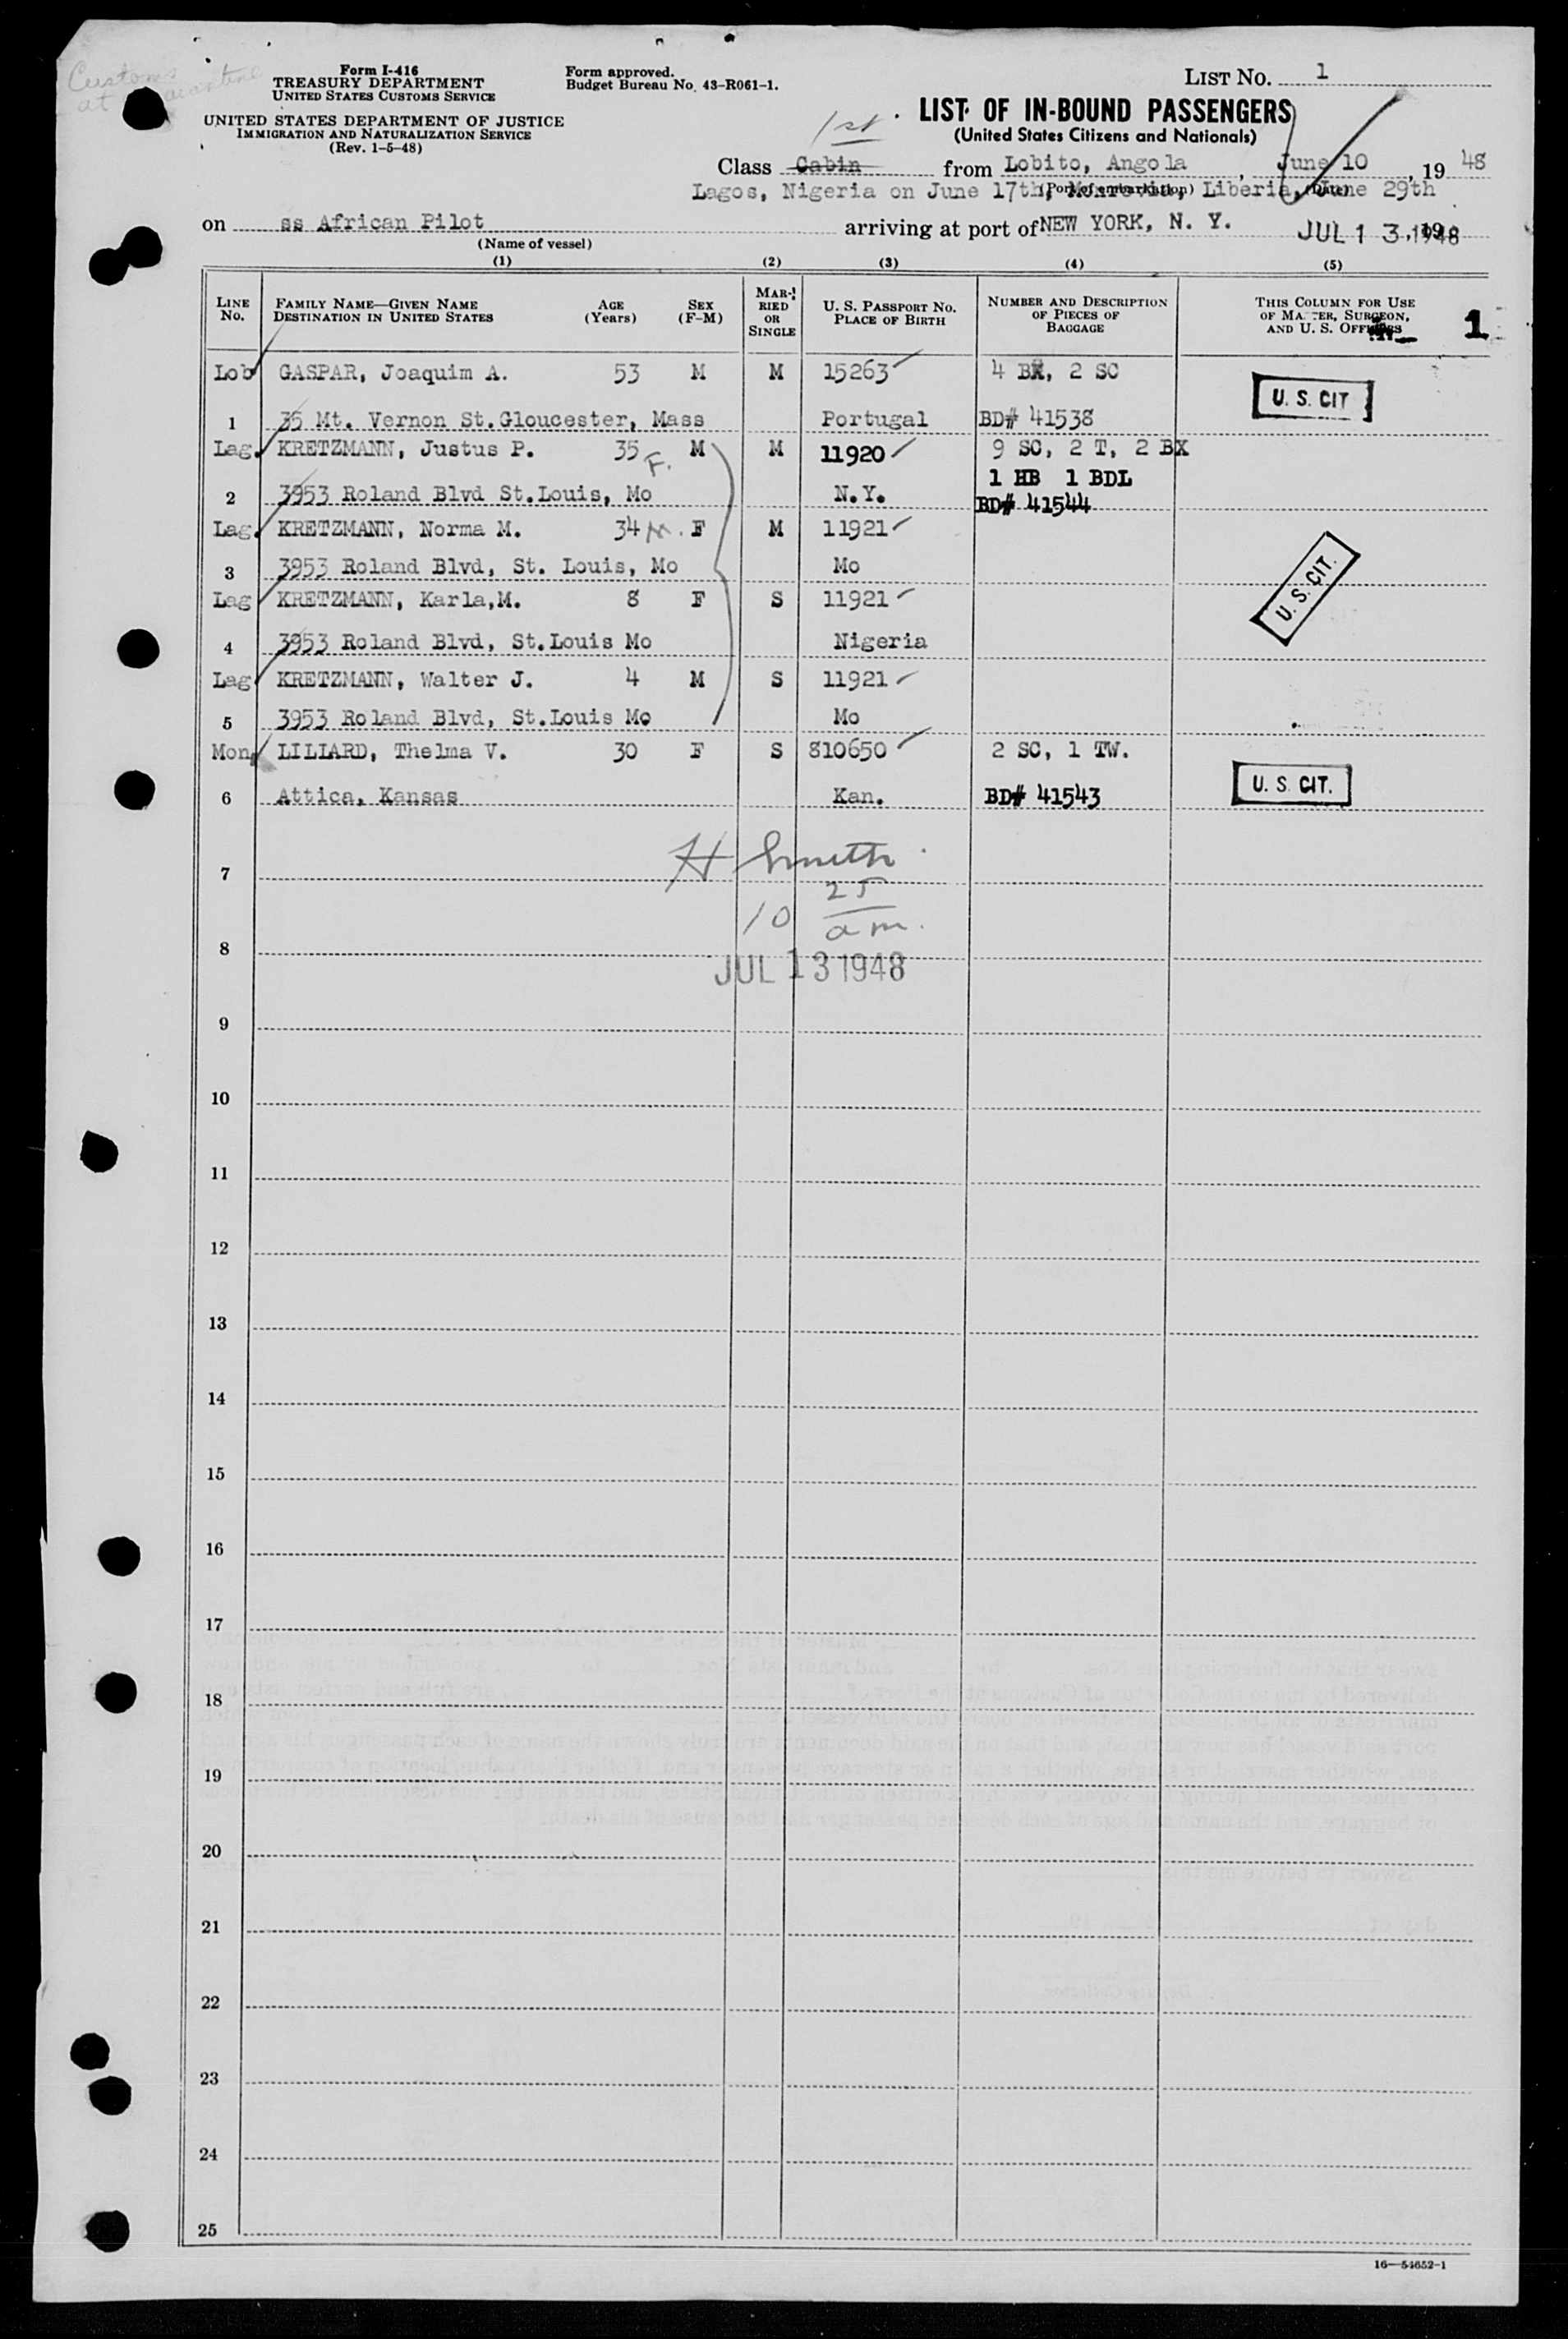 Customs
at Quarantine
Form I-416
TREASURY DEPARTMENT
UNITED STATES CUSTOMS SERVICE
UNITED STATES DEPARTMENT OF JUSTICE
IMMIGRATION AND NATURALIZATION SERVICE
(Rev. 1-5-48)
Form approved.
Budget Bureau No. 43-R061-1.
LIST NO. 1
LIST OF IN-BOUND PASSENGERS
(United States Citizens and Nationals)
1st
Class Cabin from Lobito, Angola, June 10, 19 48
Lagos, Nigeria on June 17th, Monrovia, Liberia, June 29th
(Port of embarkation) (Date)
on ss African Pilot arriving at port of NEW YORK, N. Y. JUL 13 1948, 19
(Name of vessel)
(1) (2) (3) (4) (5)
LINE NO. FAMILY NAME—GIVEN NAME DESTINATION IN UNITED STATES AGE (Years) SEX (F-M) MARRIED OR SINGLE U. S. PASSPORT NO. PLACE OF BIRTH NUMBER AND DESCRIPTION OF PIECES OF BAGGAGE THIS COLUMN FOR USE OF MASTER, SURGEON, AND U. S. OFFICERS 1
Lob GASPAR, Joaquim A. 53 M M 15263 4 BX, 2 SC
U. S. CIT
1 35 Mt. Vernon St. Gloucester, Mass Portugal BD# 41538
Lag. KRETZMANN, Justus P. 35 F. M M 11920 9 SC, 2 T, 2 BX
1 HB 1 BDL
2 3953 Roland Blvd St. Louis, Mo N.Y. BD# 41544
Lag. KRETZMANN, Norma M. 34 M. F M 11921
3 3953 Roland Blvd, St. Louis, Mo Mo
U. S. CIT.
Lag KRETZMANN, Karla, M. 8 F S 11921
4 3953 Roland Blvd, St. Louis Mo Nigeria
Lag KRETZMANN, Walter J. 4 M S 11921
5 3953 Roland Blvd, St. Louis Mo Mo
Mon. LILIARD, Thelma V. 30 F S 810650 2 SC, 1 TW.
6 Attica, Kansas Kan. BD# 41543 U. S. CIT.
H Smith
7
10 25 am.
8
JUL 13 1948
9
10
11
12
13
14
15
16
17
18
19
20
21
22
23
24
25
16—54652-1